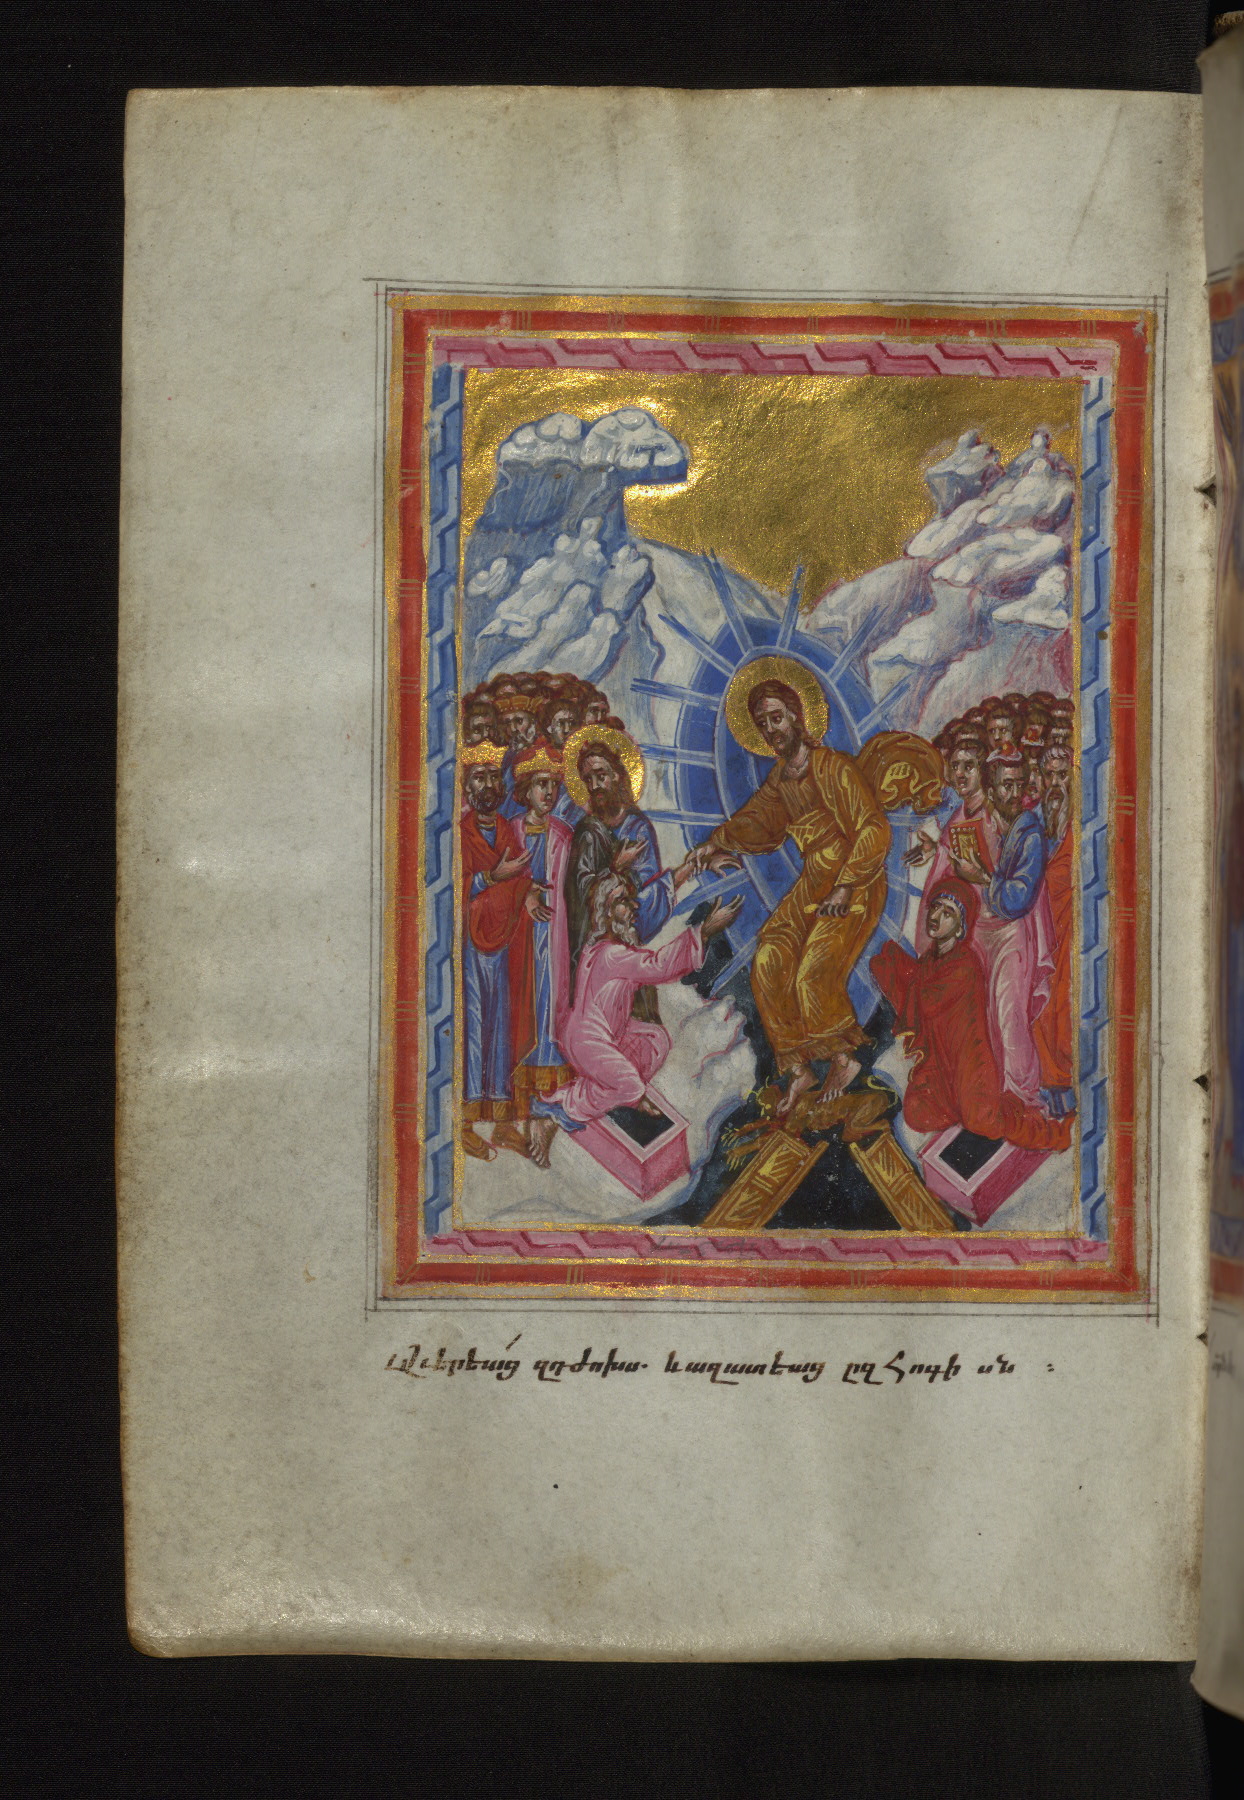 Աւերեաց զդժոխս. և ազատեաց ըզՀոգի սն ։